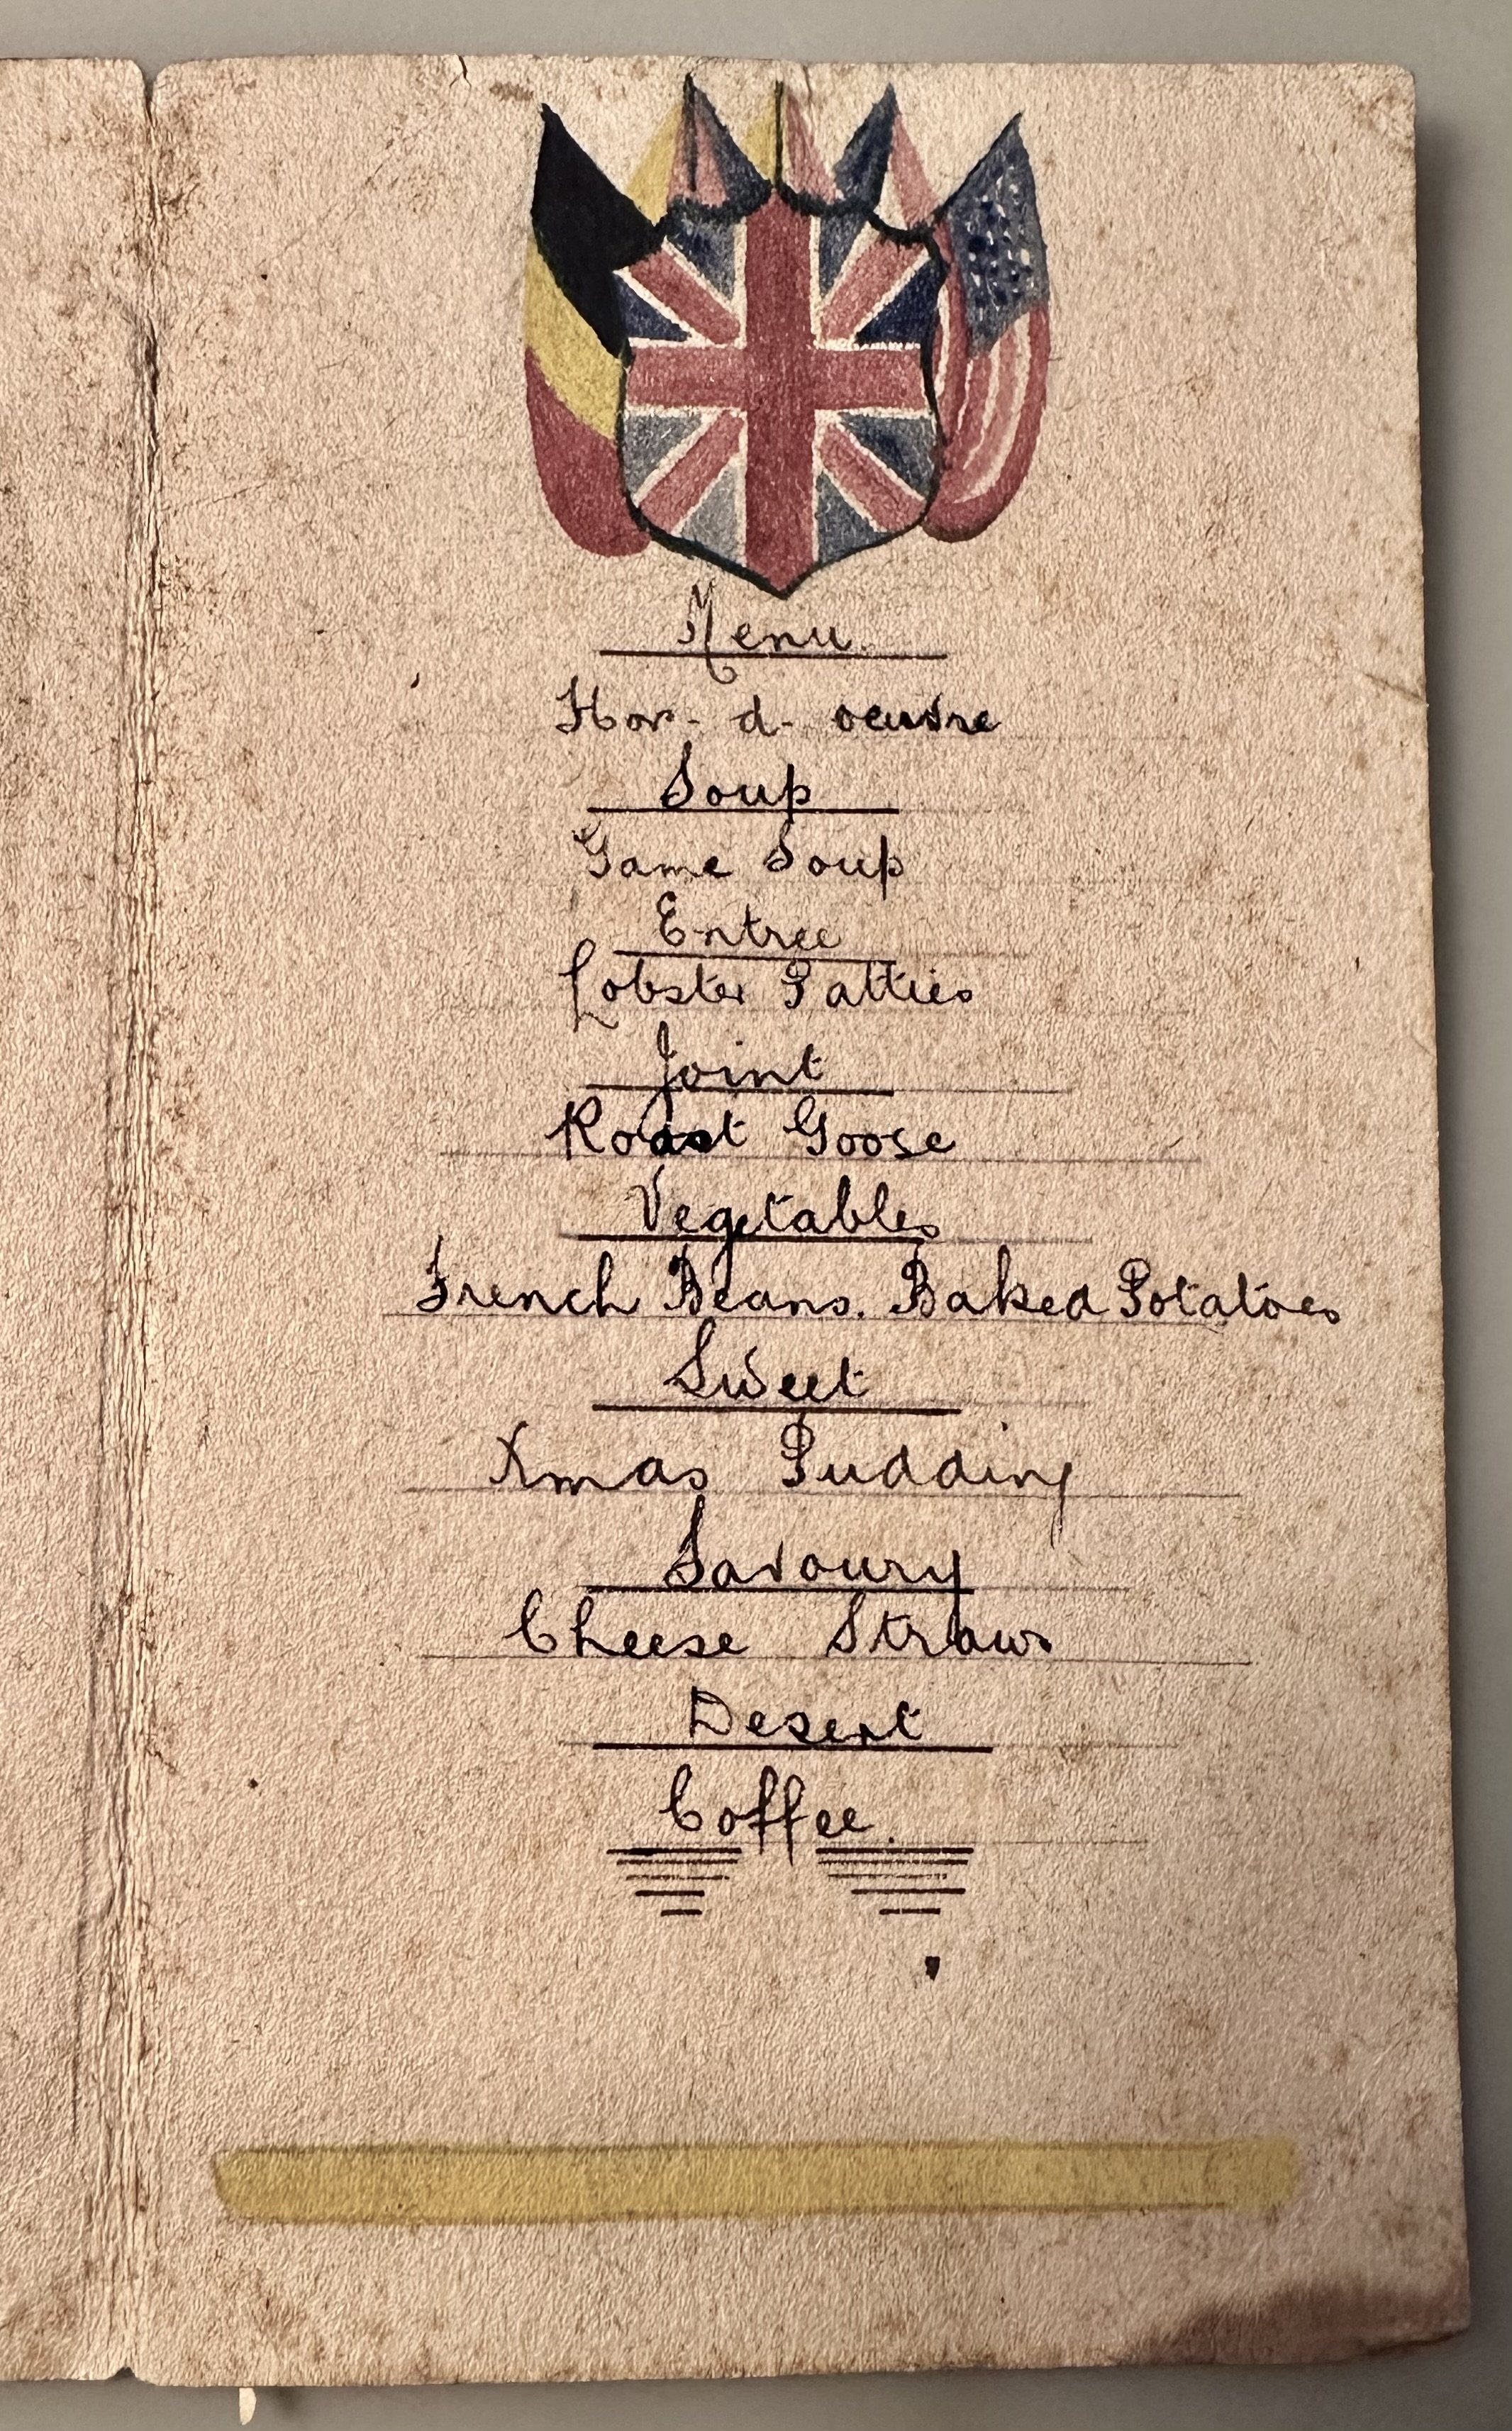 Menu.
Hor- d- oeuvre
Soup
Game Soup
Entree
Lobster Patties
Joint
Roast Goose
Vegetables
French Beans. Baked Potatoes
Sweet
Xmas Pudding
Savoury
Cheese Straws
Desert
Coffee.